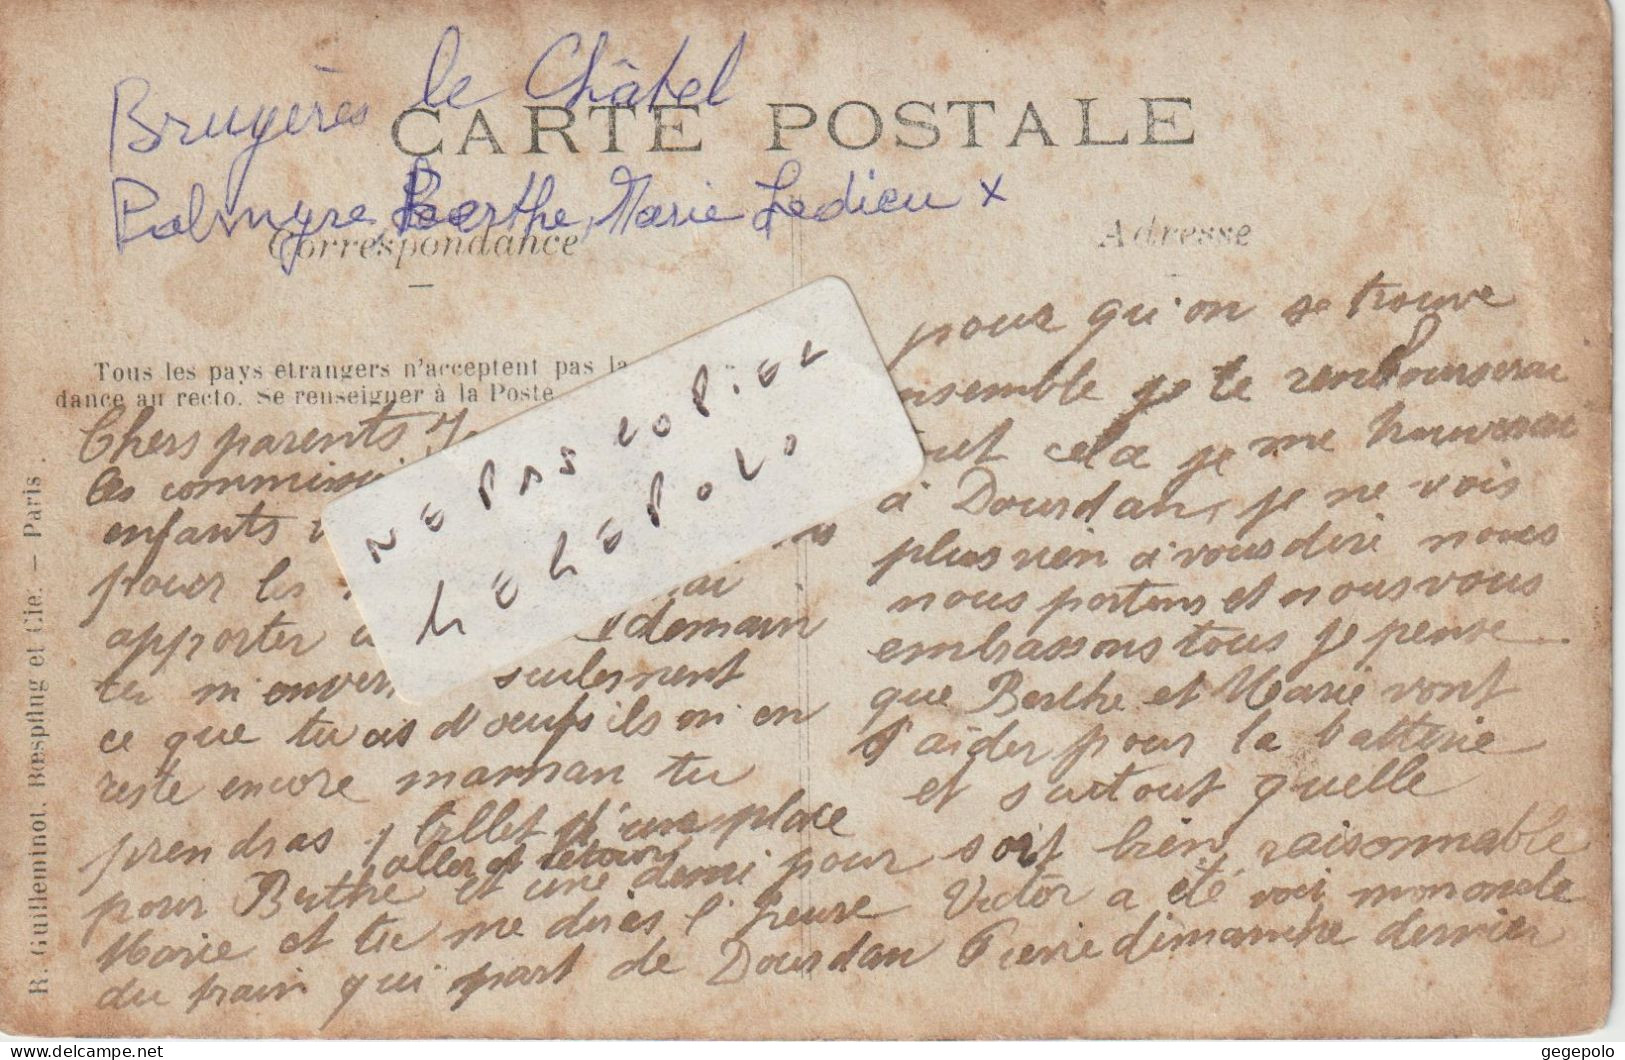 Bruyères le Châtel
CARTE POSTALE
Palmyre, Berthe, Marie Ledieu x
Correspondance
Adresse
Tous les pays etrangers n'acceptent pas la
dance au recto. Se renseigner à la Poste
R. Guilleminot, Bœspflug et Cie. — Paris.
NE PAS COPIER
Chers parents
les commissi
enfants
pour les
apporter demain
tu m'ouver seulement
ce que tu as d'oeufs ils m'en
reste encore maman tu
prendras 1 billet d'une place
aller et retour
pour Berthe et une demi pour
Marie et tu me diras l'heure
du train qui part de Dourdan
pour qu'on se trouve
nsemble je te rembourserai
out cela je me trouverai
à Dourdan, je ne vois
plus rien à vous dire nous
nous portons et nous vous
embrassons tous je pense
que Berthe et Marie vont
t'aider pour la batterie
et surtout quelle
soit bien raisonnable
Victor a été voir mon oncle
Pierre dimanche dernier
delcampe.net
gegepolo